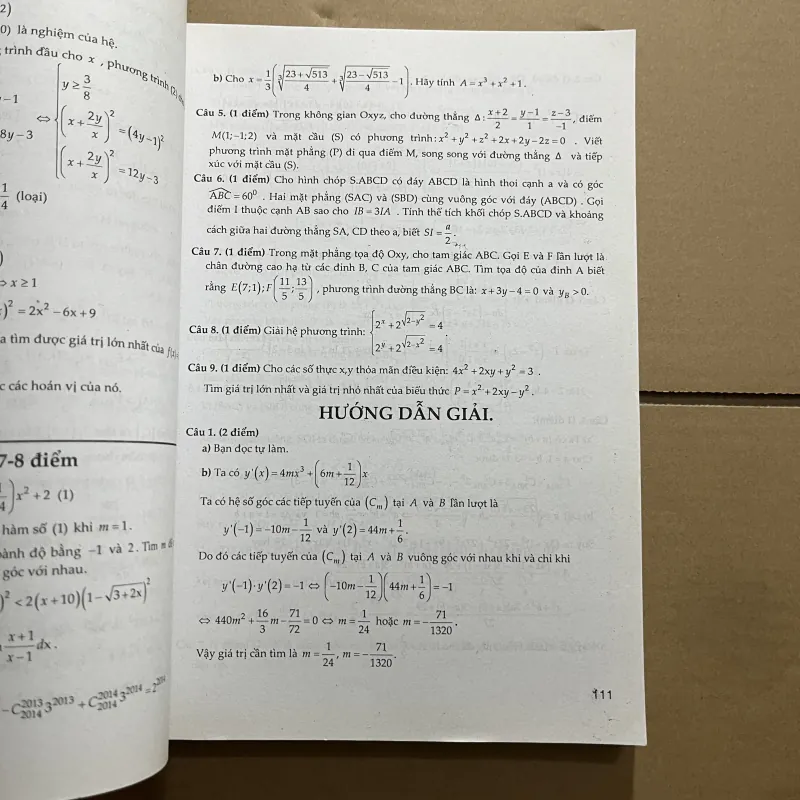 2)
0) là nghiệm của hệ.
trình đầu cho x , phương trình (2)
y ≥ 3/8
y−1 ⇔ (x + 2y/x)² = (4y−1)²
8y−3 (x + 2y/x)² = 12y−3
1/4 (loại)
)
⇔ x ≥ 1
)² = 2x² − 6x + 9
a tìm được giá trị lớn nhất của
c các hoán vị của nó.
7-8 điểm
)x² + 2 (1)
hàm số (1) khi m = 1.
hoành độ bằng −1 và 2. Tìm m
góc với nhau.
)² < 2(x+10)(1−√(3+2x))²
(x+1)/(x−1) dx.
− C₂₀₁₄²⁰¹³ 3²⁰¹³ + C₂₀₁₄²⁰¹⁴ 3²⁰¹⁴ = 2²⁰¹⁴
b) Cho x = 1/3(∛((23+√513)/4) + ∛((23−√513)/4) − 1). Hãy tính A = x³ + x² + 1.
Câu 5. (1 điểm) Trong không gian Oxyz, cho đường thẳng Δ: (x+2)/2 = (y−1)/1 = (z−3)/−1, điểm
M(1;−1;2) và mặt cầu (S) có phương trình: x² + y² + z² + 2x + 2y − 2z = 0 . Viết
phương trình mặt phẳng (P) đi qua điểm M, song song với đường thẳng Δ và tiếp
xúc với mặt cầu (S).
Câu 6. (1 điểm) Cho hình chóp S.ABCD có đáy ABCD là hình thoi cạnh a và có góc
ABC = 60⁰ . Hai mặt phẳng (SAC) và (SBD) cùng vuông góc với đáy (ABCD) . Gọi
điểm I thuộc cạnh AB sao cho IB = 3IA . Tính thể tích khối chóp S.ABCD và khoảng
cách giữa hai đường thẳng SA, CD theo a, biết SI = a/2.
Câu 7. (1 điểm) Trong mặt phẳng tọa độ Oxy, cho tam giác ABC. Gọi E và F lần lượt là
chân đường cao hạ từ các đỉnh B, C của tam giác ABC. Tìm tọa độ của đỉnh A biết
rằng E(7;1); F(11/5; 13/5) , phương trình đường thẳng BC là: x + 3y − 4 = 0 và y_B > 0.
Câu 8. (1 điểm) Giải hệ phương trình: { 2^x + 2^√(2−y²) = 4
2^y + 2^√(2−x²) = 4 .
Câu 9. (1 điểm) Cho các số thực x,y thỏa mãn điều kiện: 4x² + 2xy + y² = 3 .
Tìm giá trị lớn nhất và giá trị nhỏ nhất của biểu thức P = x² + 2xy − y² .
HƯỚNG DẪN GIẢI.
Câu 1. (2 điểm)
a) Bạn đọc tự làm.
b) Ta có y'(x) = 4mx³ + (6m + 1/12)x
Ta có hệ số góc các tiếp tuyến của (Cₘ) tại A và B lần lượt là
y'(−1) = −10m − 1/12 và y'(2) = 44m + 1/6.
Do đó các tiếp tuyến của (Cₘ) tại A và B vuông góc với nhau khi và chỉ khi
y'(−1)·y'(2) = −1 ⇔ (−10m − 1/12)(44m + 1/6) = −1
⇔ 440m² + 16/3 m − 71/72 = 0 ⇔ m = 1/24 hoặc m = −71/1320.
Vậy giá trị cần tìm là m = 1/24, m = −71/1320.
111